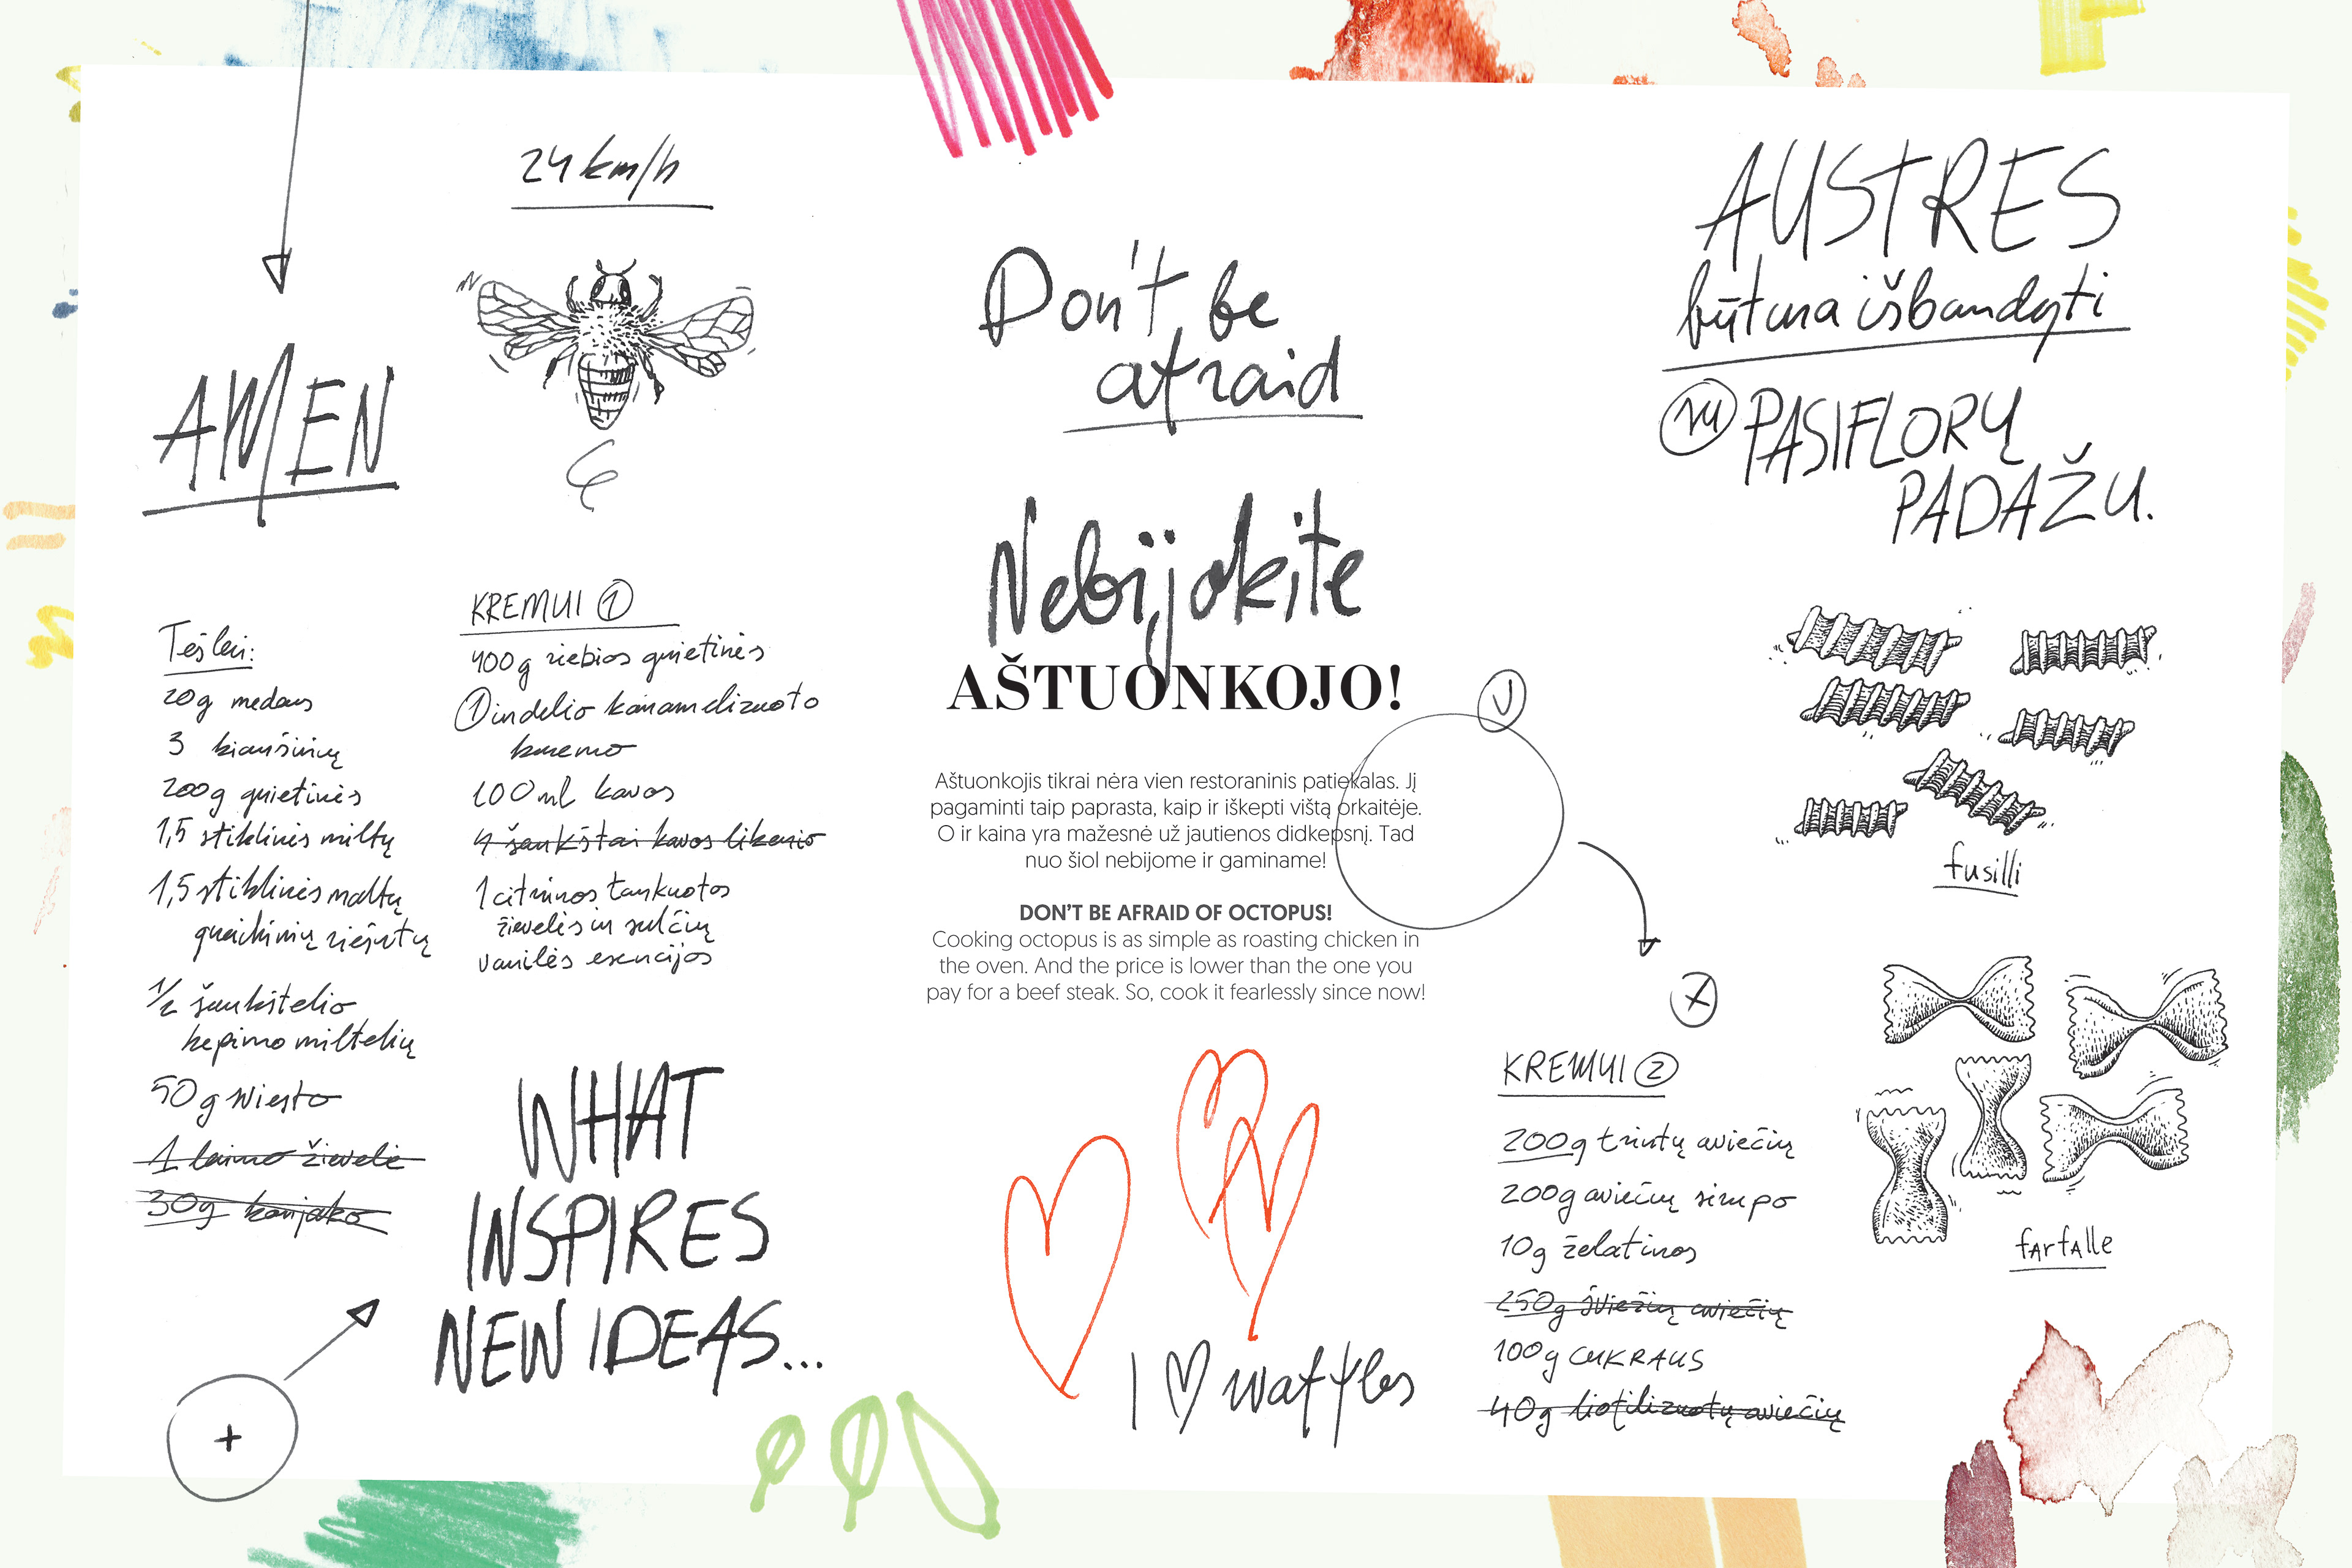 24 km/h
AMEN
Tešlai:
20g medaus
3 kiaušinių
200g grietinės
1,5 stiklinės miltų
1,5 stiklinės maltų
graikinių riešutų
1/2 šaukštelio
kepimo miltelių
50g sviesto
1 laimo žievelė
30g konjako
KREMUI 1
400g riebios grietinės
1 indelio karamelizuoto
kremo
100 ml kavos
4 šaukštai kavos likerio
1 citrinos tarkuotos
žievelės ir sulčių
vanilės esencijos
WHAT
INSPIRES
NEW IDEAS...
Don't be
afraid
Nebijokite
AŠTUONKOJO!
Aštuonkojis tikrai nėra vien restoraninis patiekalas. Jį
pagaminti taip paprasta, kaip ir iškepti vištą orkaitėje.
O ir kaina yra mažesnė už jautienos didkepsnį. Tad
nuo šiol nebijome ir gaminame!
DON'T BE AFRAID OF OCTOPUS!
Cooking octopus is as simple as roasting chicken in
the oven. And the price is lower than the one you
pay for a beef steak. So, cook it fearlessly since now!
I ♡ waffles
AUSTRES
būtina išbandyti
su PASIFLORŲ
PADAŽU.
fusilli
farfalle
KREMUI 2
200g trintų aviečių
200g aviečių sirupo
10g želatinos
250g šviežių aviečių
100g CUKRAUS
40g liofilizuotų aviečių